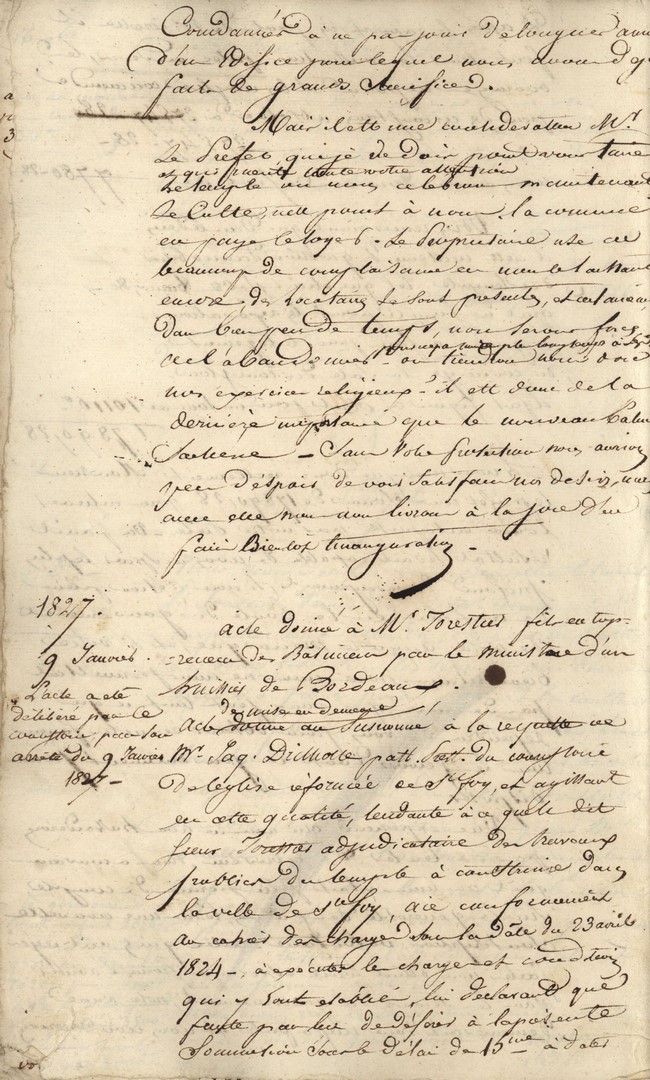 Condamnés à ne pas jouir de longues ann
d'un Edifice pour lequel nous avons dej
fait de grands sacrifices.
Mais il est une consideration Mr
Le Prefet, qui je ne dois point vous taire
et qui merite toute votre attention
Le temple où nous celebrons maintenant
Le Culte, n'est point à nous. la commune
en paye le loyer. Le Propriétaire use de
beaucoup de complaisance en nous le laissant
encore, des Locataires se sont présentés, et
dans bien peu de temps, nous serons forcés
de l'abandonner où tiendrons nous donc
nos exercices religieux? il est donc de la
dernière importance que le nouveau
s'acheve - Sans Votre protection nous aurions
peu d'espoir de voir satisfaire nos desirs,
avec elle nous nous livrons à la joie d'en
faire Bientot l'inauguration -
1827.
9 Janvier.
L'acte a été
délibéré par le
consistoire par son
arrêté du 9 Janvier
1827 -
acte donné à Mr. Forestier fils entrep-
-reneur de Bâtimens par le ministère d'un
huissier de Bordeaux.
de mise en demeure
acte donné au susnommé à la requette de
Mr. Jaq. Drilholle past. Prest. du consistoire
de l'église réformée de Ste foy, et agissant
en cette qualité, tendante à ce que le dit
sieur adjudicataire des travaux
publics du temple à construire dans
la ville de Ste foy, aie conformement
au cahier des charges sous la date du 23 avril
1824 -, à exécuter les charges et conditions
qui y sont etablies, lui déclarant que
faute par lui de déférer à la présente
sommation dans le délai de 15me à dater